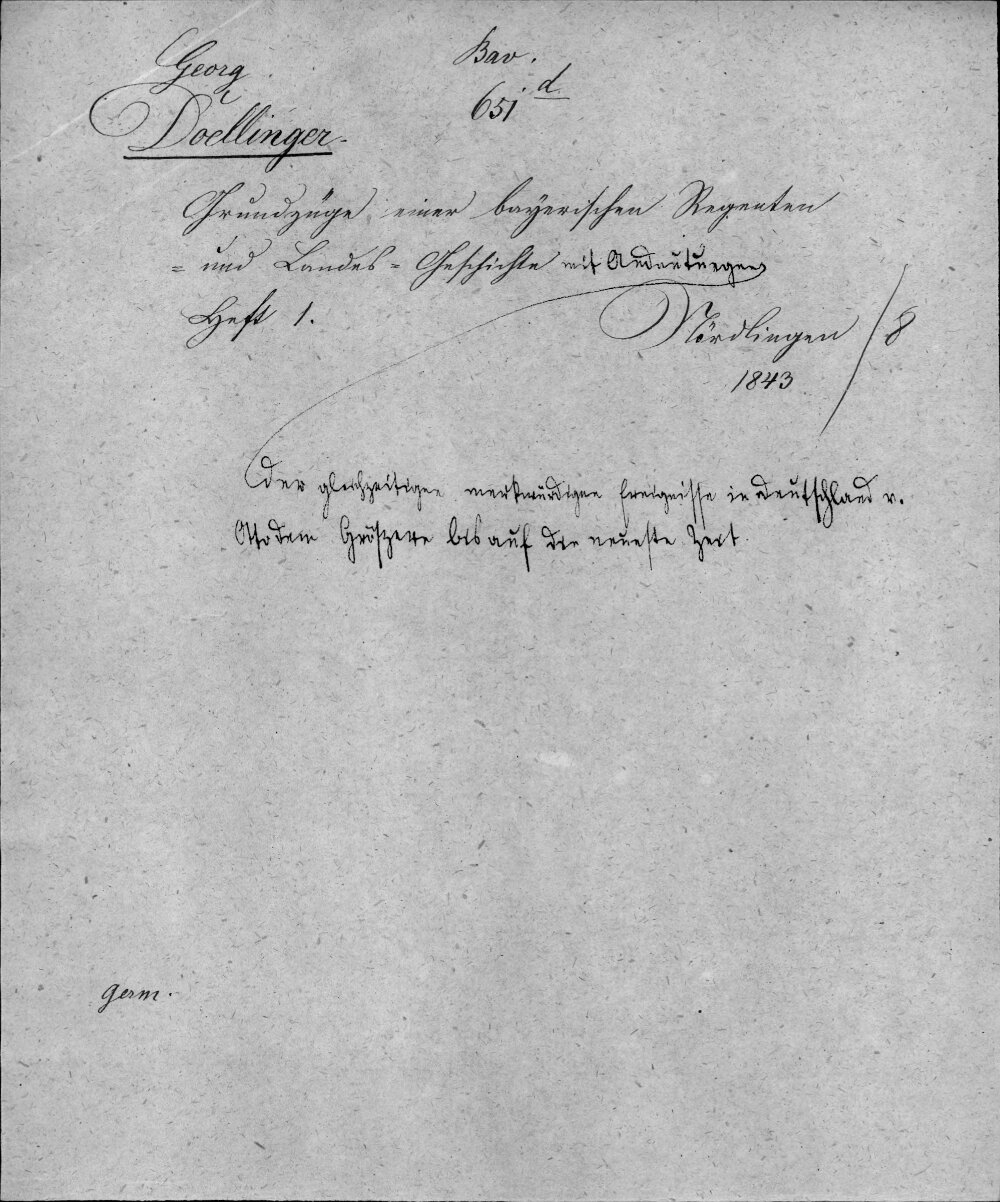 Georg
Doellinger.
Bav.
651 d
Grundzüge einer bayerischen Regenten
= und Landes-Geschichte mit Andeutungen
Heft 1.
Nördlingen / 8
1843
der gleichzeitigen merkwürdigen Ereignisse in Deutschland v.
Otto dem Gröszern bis auf die neueste Zeit.
germ.